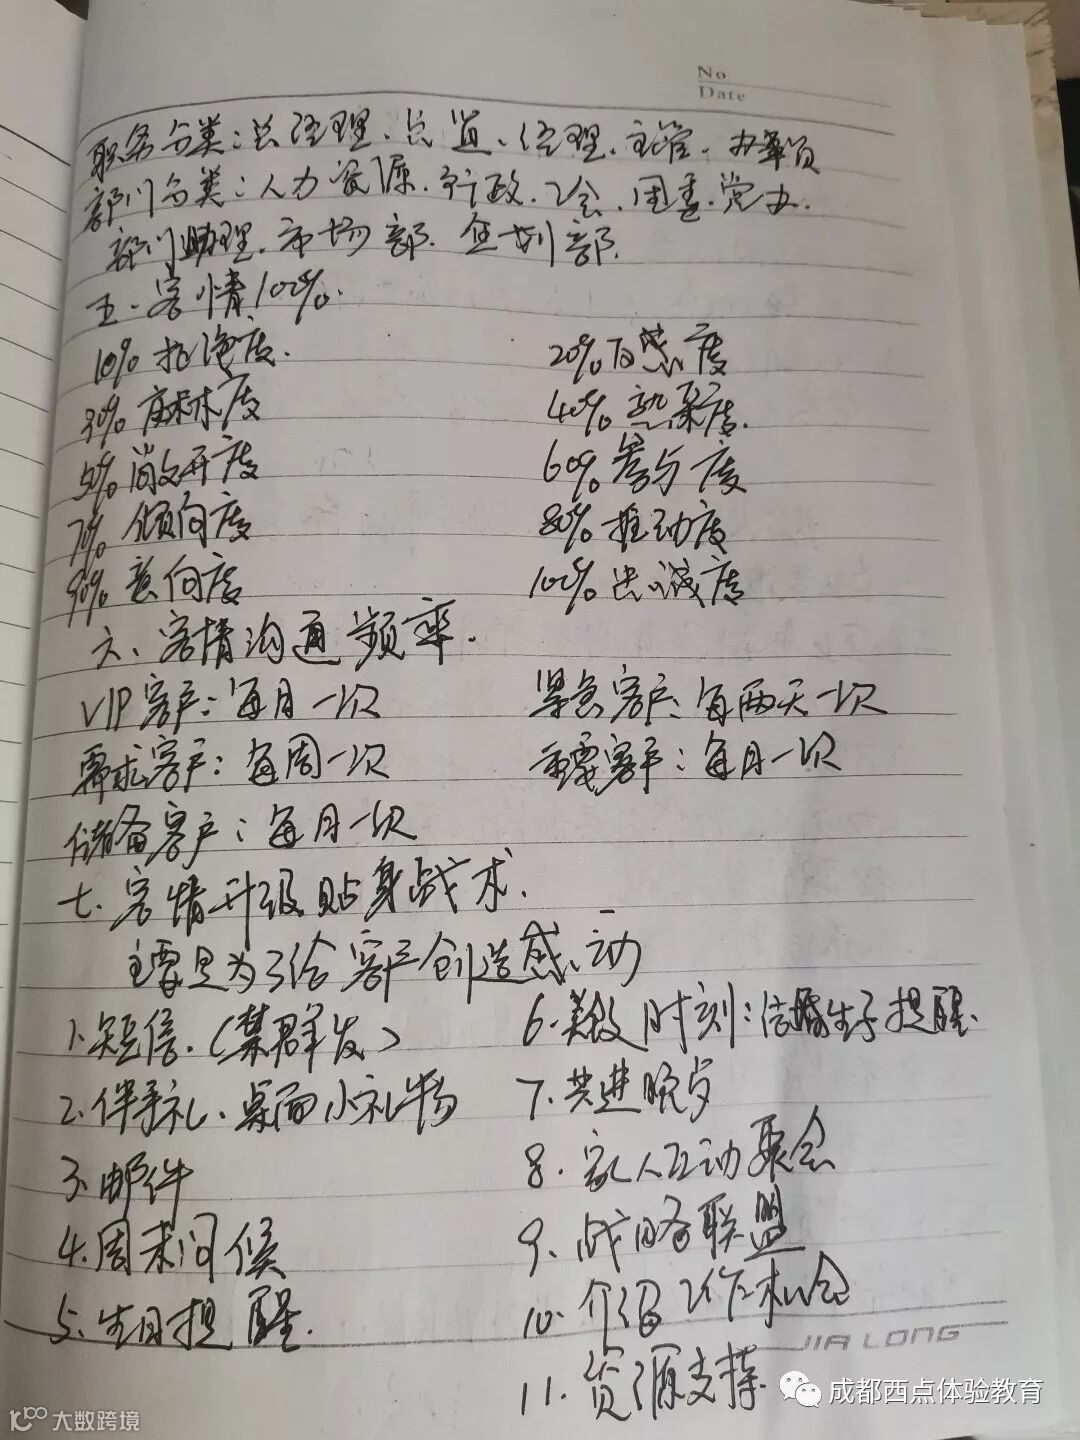 No
Date
职务分类：总经理、总监、经理、主管、办事员
部门分类：人力资源、行政、工会、团委、党办、
部门助理、市场部、企划部.
五、客情100%.
10%拒绝度. 20%反感度
30%麻木度 40%熟悉度.
50%敞开度 60%参与度
70%倾向度 80%推动度
90%意向度 100%忠诚度
六、客情沟通频率.
VIP客户：每月一次 紧急客户：每两天一次
需求客户：每周一次 重要客户：每月一次
储备客户：每月一次
七、客情升级贴身战术.
主要是为了给客户创造感动
1.短信.（禁群发） 6.美好时刻：结婚生子提醒.
2.伴手礼、桌面小礼物 7.共进晚
3.邮件 8.家人互动聚会
4.周末问候 9.战略联盟
5.生日提醒. 10.介绍工作机会
JIA LONG
11.资源支持.
成都西点体验教育
大数跨境